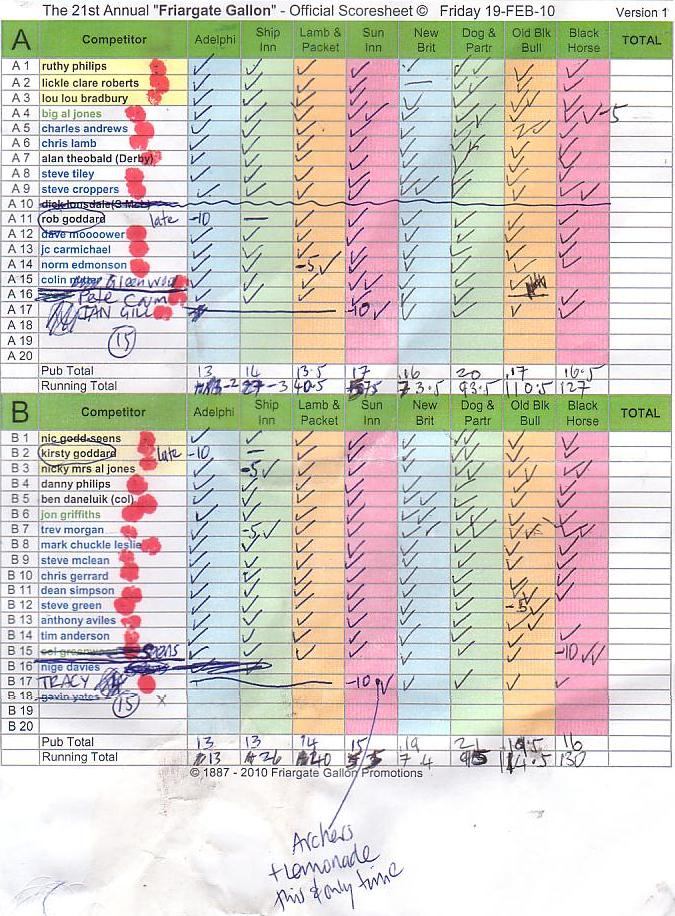 The 21st Annual "Friargate Gallon" - Official Scoresheet © Friday 19-FEB-10 Version 1
A Competitor Adelphi Ship Inn Lamb & Packet Sun Inn New Brit Dog & Partr Old Blk Bull Black Horse TOTAL
A 1 ruthy philips ✓ ✓ ✓ ✓ ✓ ✓ ✓ ✓
A 2 lickle clare roberts
A 3 lou lou bradbury
A 4 big al jones -5
A 5 charles andrews
A 6 chris lamb
A 7 alan theobald (Derby)
A 8 steve tiley
A 9 steve croppers
A 10 dick lonsdale
A 11 rob goddard late -10 —
A 12 dave moooower
A 13 jc carmichael
A 14 norm edmonson -5
A 15 colin Greenwood
A 16 Pete
A 17 IAN GILL -10
A 18
A 19 (15)
A 20
Pub Total 13 14 13.5 17 16 20 17 16.5
Running Total 40.5 73.5 93.5 110.5 127
B Competitor Adelphi Ship Inn Lamb & Packet Sun Inn New Brit Dog & Partr Old Blk Bull Black Horse TOTAL
B 1 nic godd-seens
B 2 kirsty goddard late -10 —
B 3 nicky mrs al jones -5
B 4 danny philips
B 5 ben daneluik (col)
B 6 jon griffiths
B 7 trev morgan -5
B 8 mark chuckle leslie
B 9 steve mclean
B 10 chris gerrard
B 11 dean simpson
B 12 steve green -5
B 13 anthony aviles
B 14 tim anderson
B 15 Seens -10
B 16 nige davies
B 17 TRACY -10
B 18 gavin yates (15) X
B 19
B 20
Pub Total 13 13 14 15 19 21 16
Running Total 13 26 40 74 130
© 1887 - 2010 Friargate Gallon Promotions
Archers
+ Lemonade
this & only time